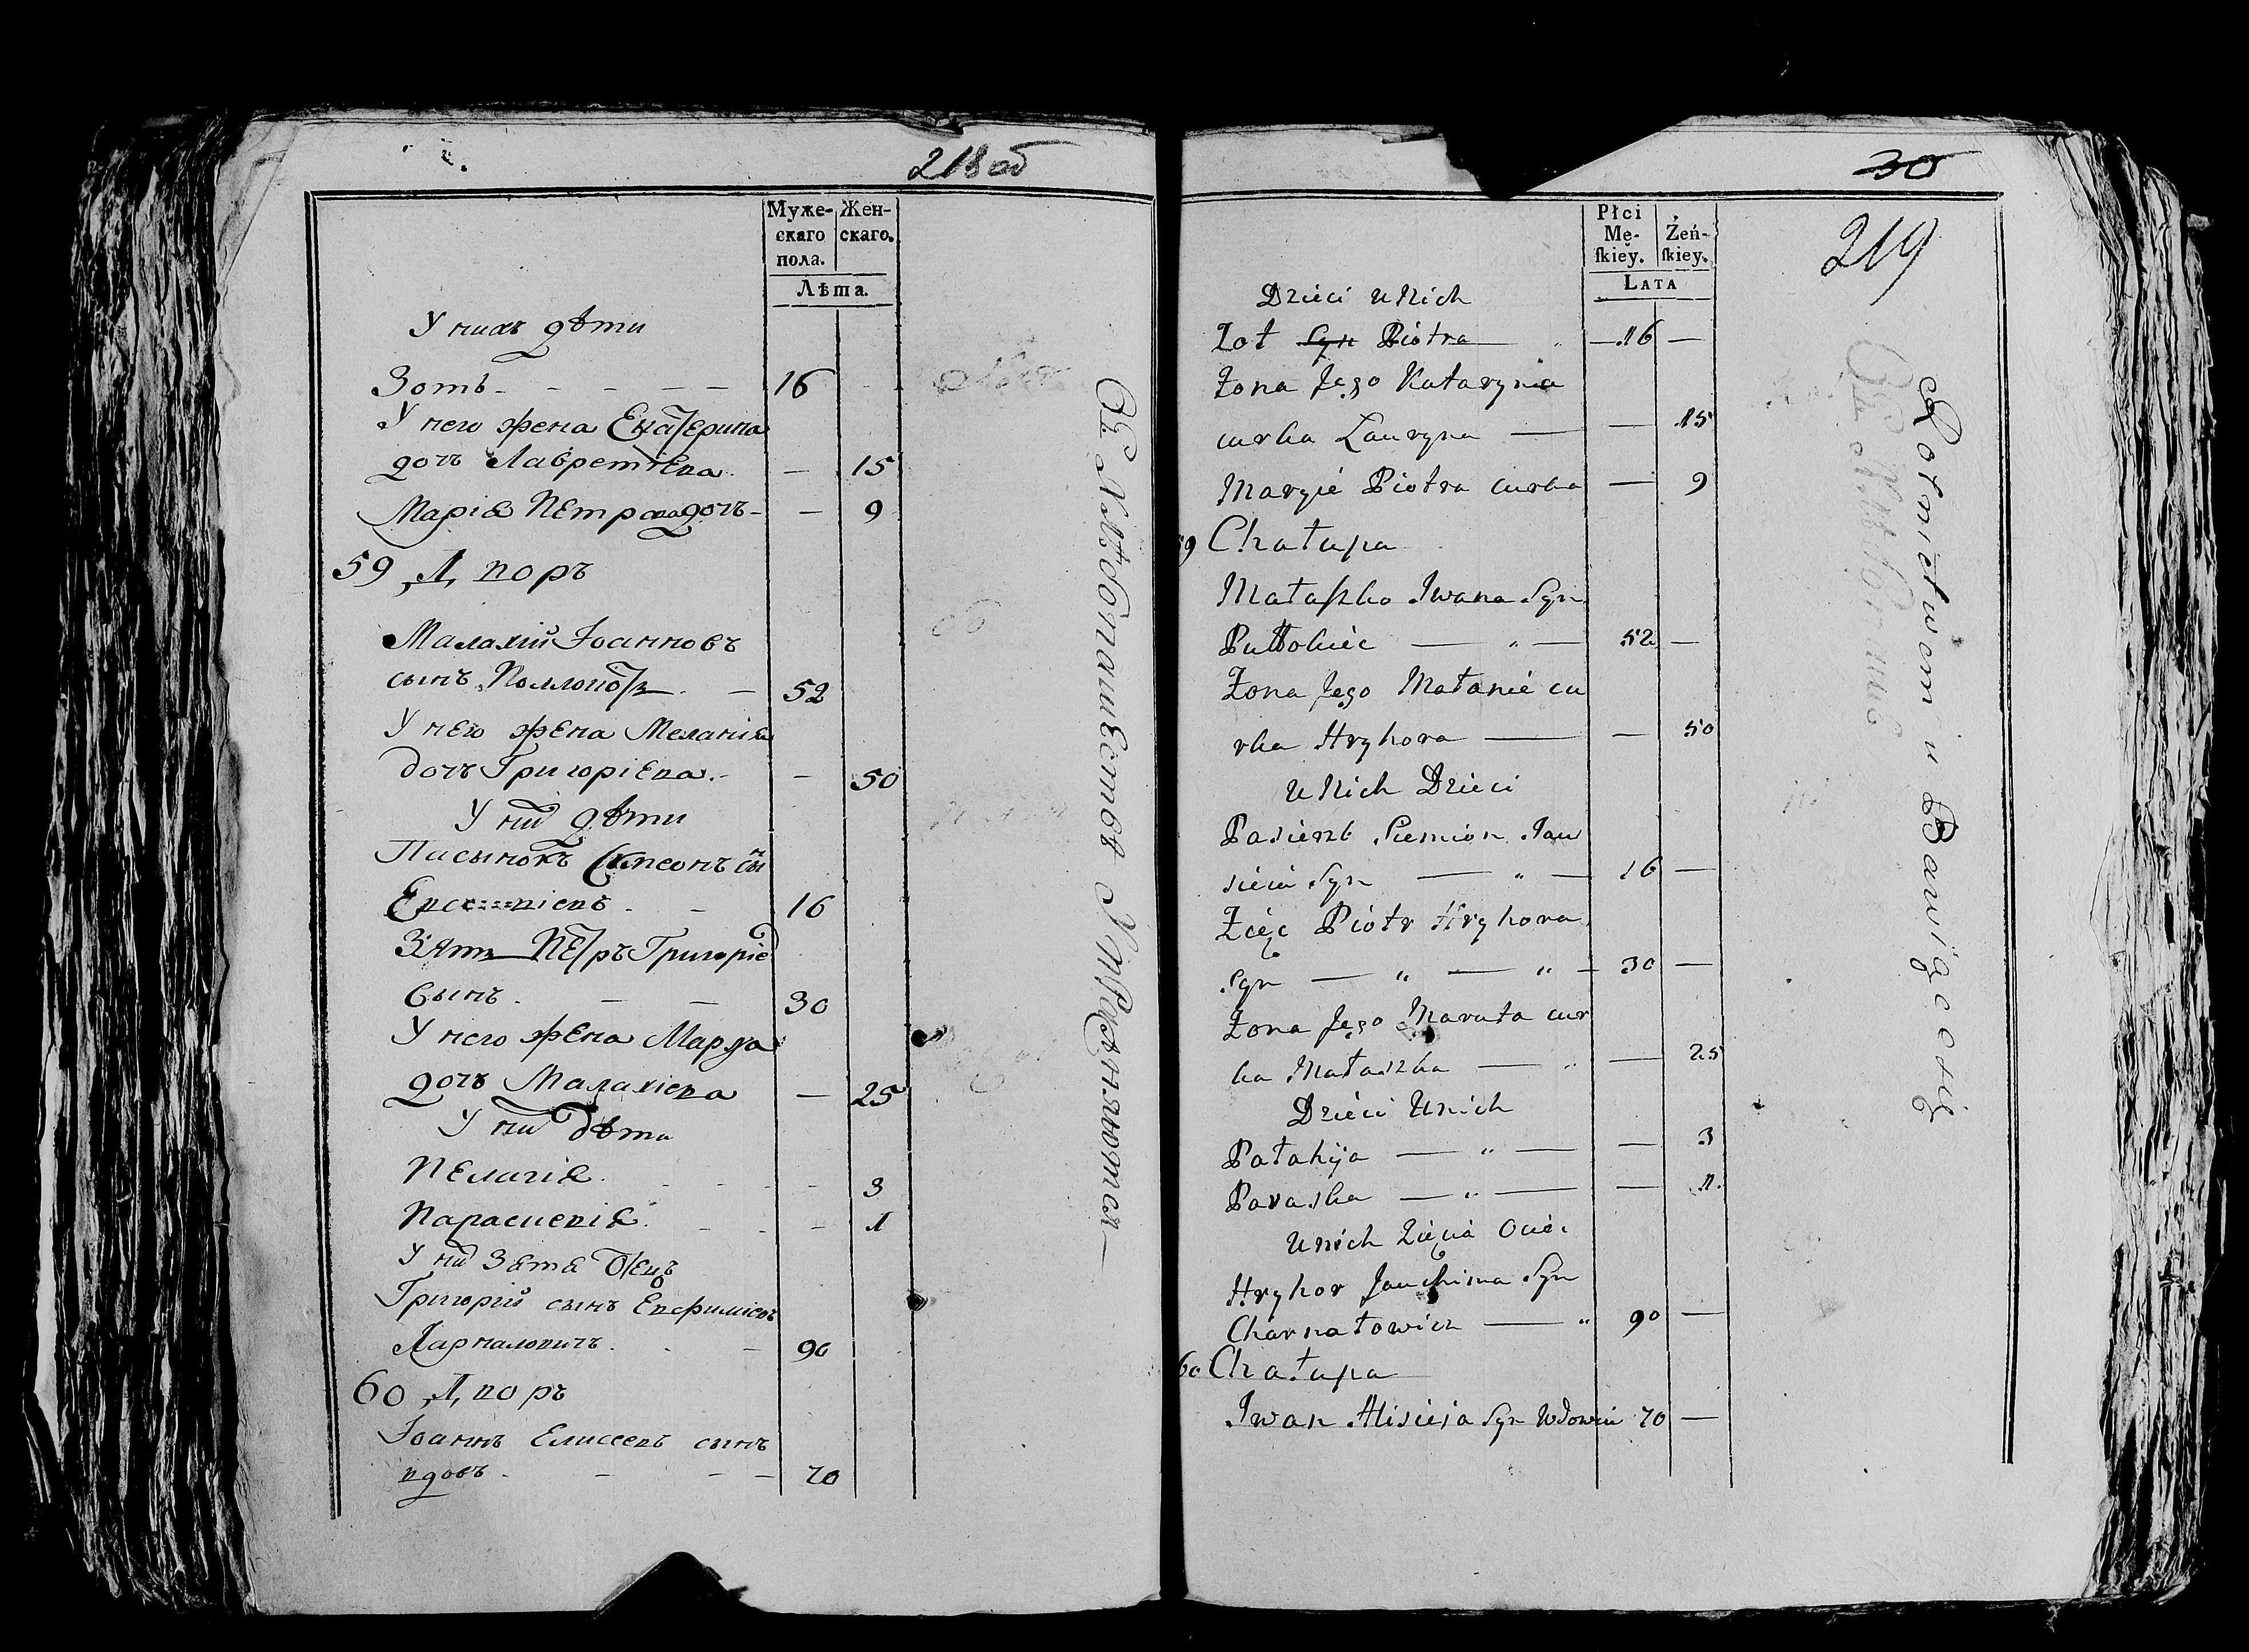 218 об
Муже-
скаго
пола.
Жен-
скаго.
Лѣта.
У нихъ дѣти
Зотъ - - - - - 16
У него жена Екатерина
дочь Лаврентіева - 15
Маріа Петрова дочь - - 9
59 Дворъ
Малахій Іоанновъ
сынъ - 52
У него жена Меланіа
дочь Григоріева. - 50
У ни дѣти
Пасынокъ Симеонъ сын
16
Зять Петръ Григоріе
сынъ. - - 30
У него жена Марѳа
дочь Малахіева - 25
У ни дѣти
Пелагіа. - - - 3
Параскевіа. - - 1
У ни Зятя Отецъ
Григорій сынъ Евфиміевъ
- 90
60 Дворъ
Іоаннъ Елисеевъ сынъ
вдовъ. - - - 70
30
219
Płci
Mę-
ſkiey.
Żeń-
ſkiey.
LATA
Dzieci u Nich
Zot Syn Piotra — 16 —
Żona Jego Kataryna
curka Ławryna — — 15
Maryie Piotra curka — 9
59 Chałupa
Małaſzko Iwana Syn
— „ — 52 —
Żona Jego Małanie cu
rka Hryhora — — 50
u Nich Dzieci
Pasierzb Siemion Jau
sieia Syn — „ — 16 —
Zięć Piotr Hryhora
Syn — „ — „ — 30 —
Żona Jego Maruta cur
ka Małaszka — „ — 25
Dzieci u Nich
Pałahija — „ — — 3
Paraska — „ — — 1.
u nich Zięcia Ociec
Hryhor Jauchima Syn
Charnałowicz — „ 90 —
60 Chałupa
Iwan Alisieia Syn Wdowiec 70 —